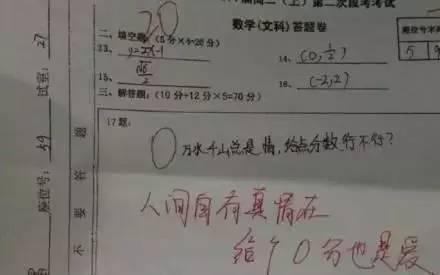 届高二（上）第二次段考考试
数学(文科)答题卷
20
二、填空题:(5分×4=20分)
13、y=2x-1
14、(0,1/2)
15、√6/2
16、(-2,2)
三、解答题:(10分+12分×5=70分)
17题:
0 万水千山总是情,给点分数行不行?
人间自有真情在
给个0分也是爱
试室:27
座位号:
不要答题
座位号末
5